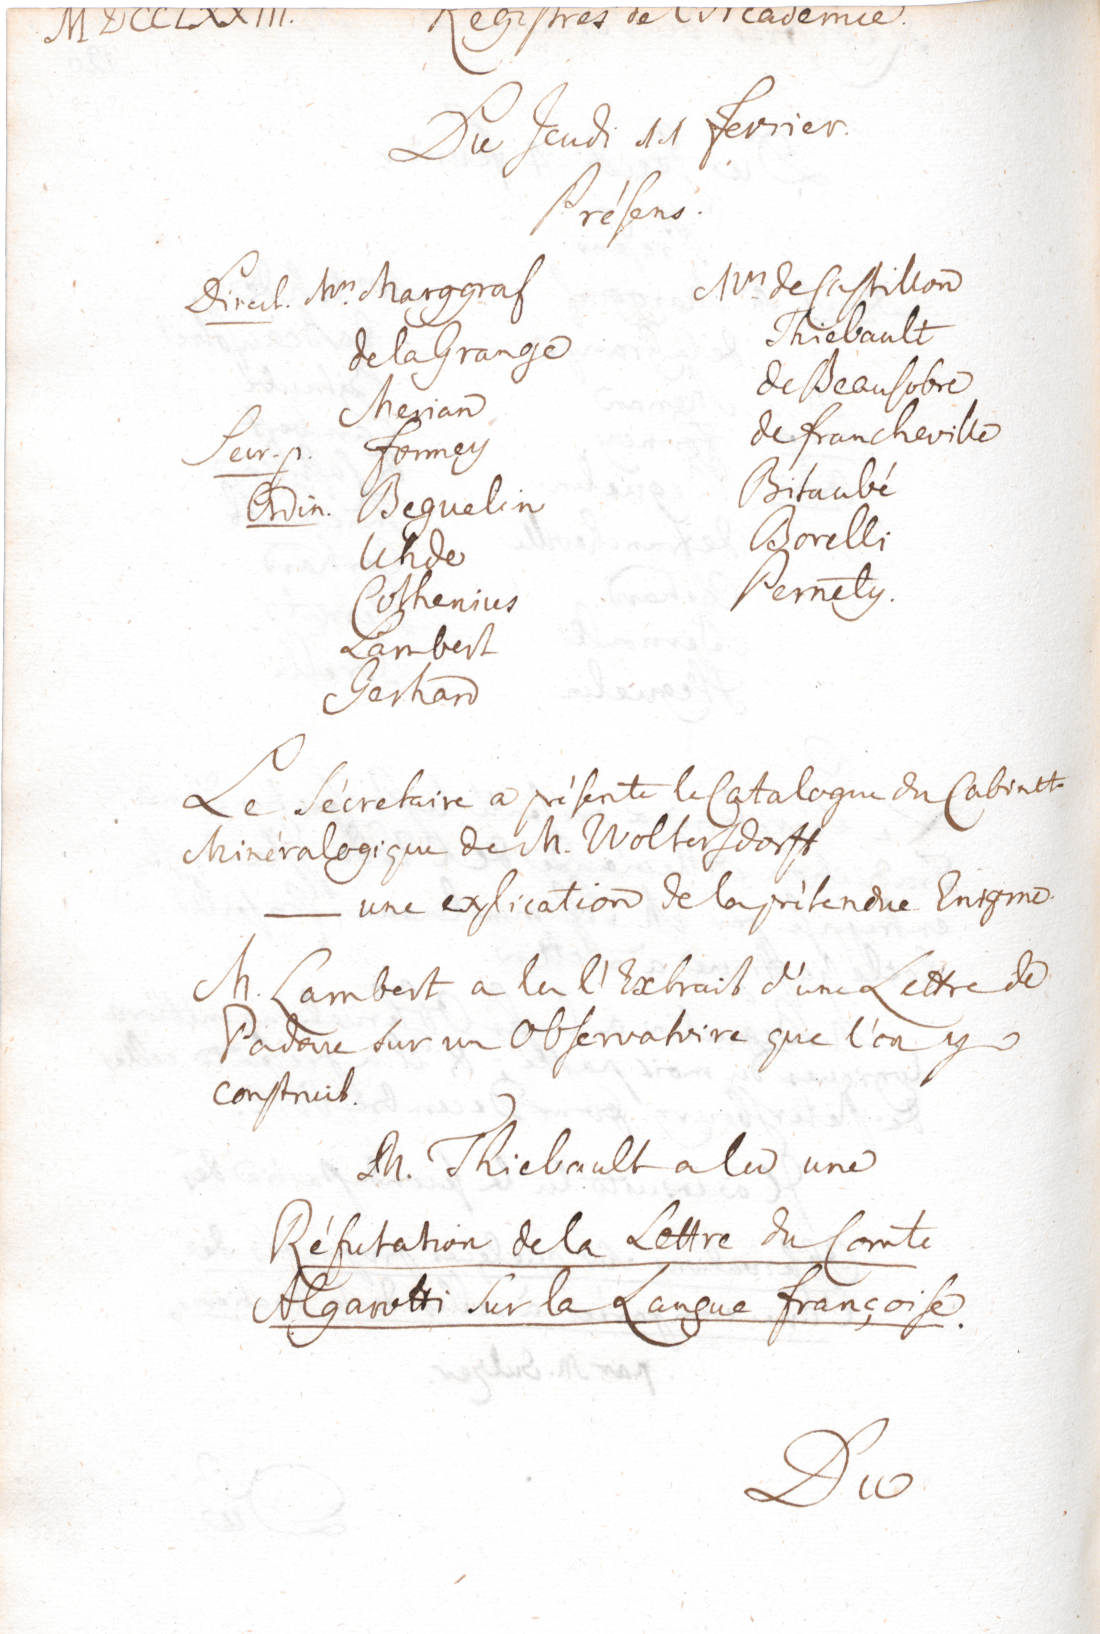 MDCCLXXIII. Registres de l'Academie.
Du Jeudi 11 fevrier.
Présens.
Direct. Mrs. Marggraf
de la Grange
Merian
Secr. p. formey
Ordin. Beguelin
Uhde
Cothenius
Lambert
Gerhard
Mrs de Castillon
Thiebault
de Beausobre
de francheville
Bitaubé
Borelli
Pernety.
Le Sécretaire a présenté le Catalogue du Cabinet
Minéralogique de M. Woltersdorff
—— une explication de la prétendue Enigme.
M. Lambert a lu l'Extrait d'une Lettre de
Padoue sur un Observatoire que l'on y
construit.
M. Thiebault a lu une
Réfutation de la Lettre du Comte
Algarotti sur la Langue françoise.
Du